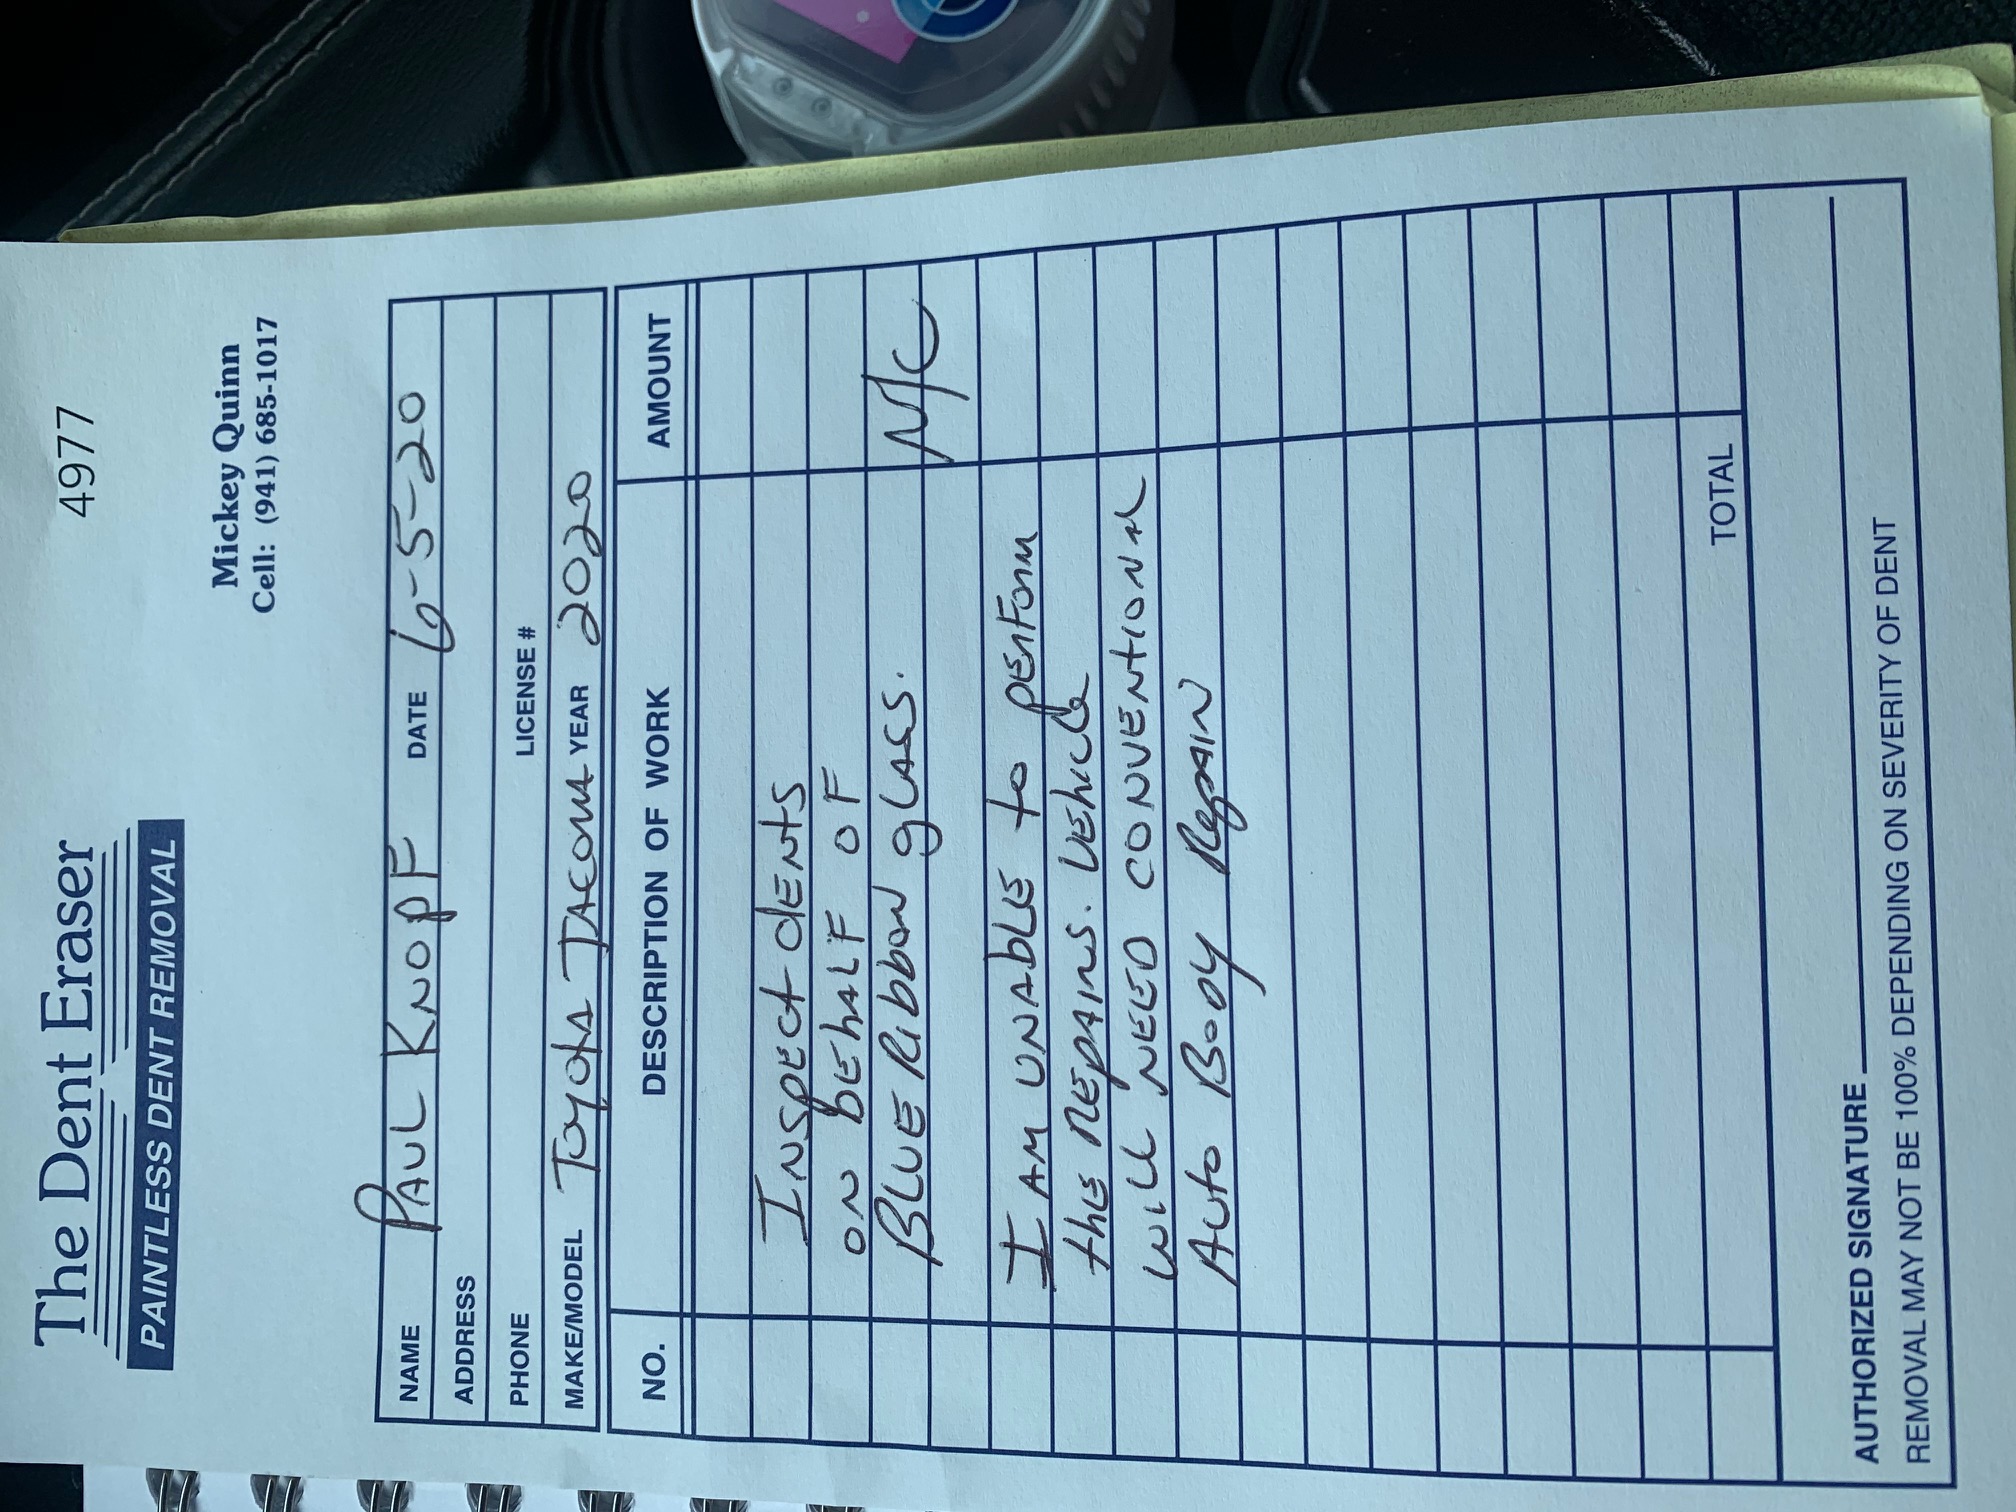 The Dent Eraser
4977
PAINTLESS DENT REMOVAL
Mickey Quinn
Cell: (941) 685-1017
NAME PAUL KNOPF DATE 6-5-20
ADDRESS
PHONE LICENSE #
MAKE/MODEL Toyota TACOMA YEAR 2020
NO. DESCRIPTION OF WORK AMOUNT
INSPECT dENts
ON bEhALF OF
BLUE Ribbon gLASS. N/C
I AM UNAbLE to pERFORM
thE REPAIRS. VEhicle
WILL NEED CONVENTIONAL
Auto Body Repair
TOTAL
AUTHORIZED SIGNATURE
REMOVAL MAY NOT BE 100% DEPENDING ON SEVERITY OF DENT